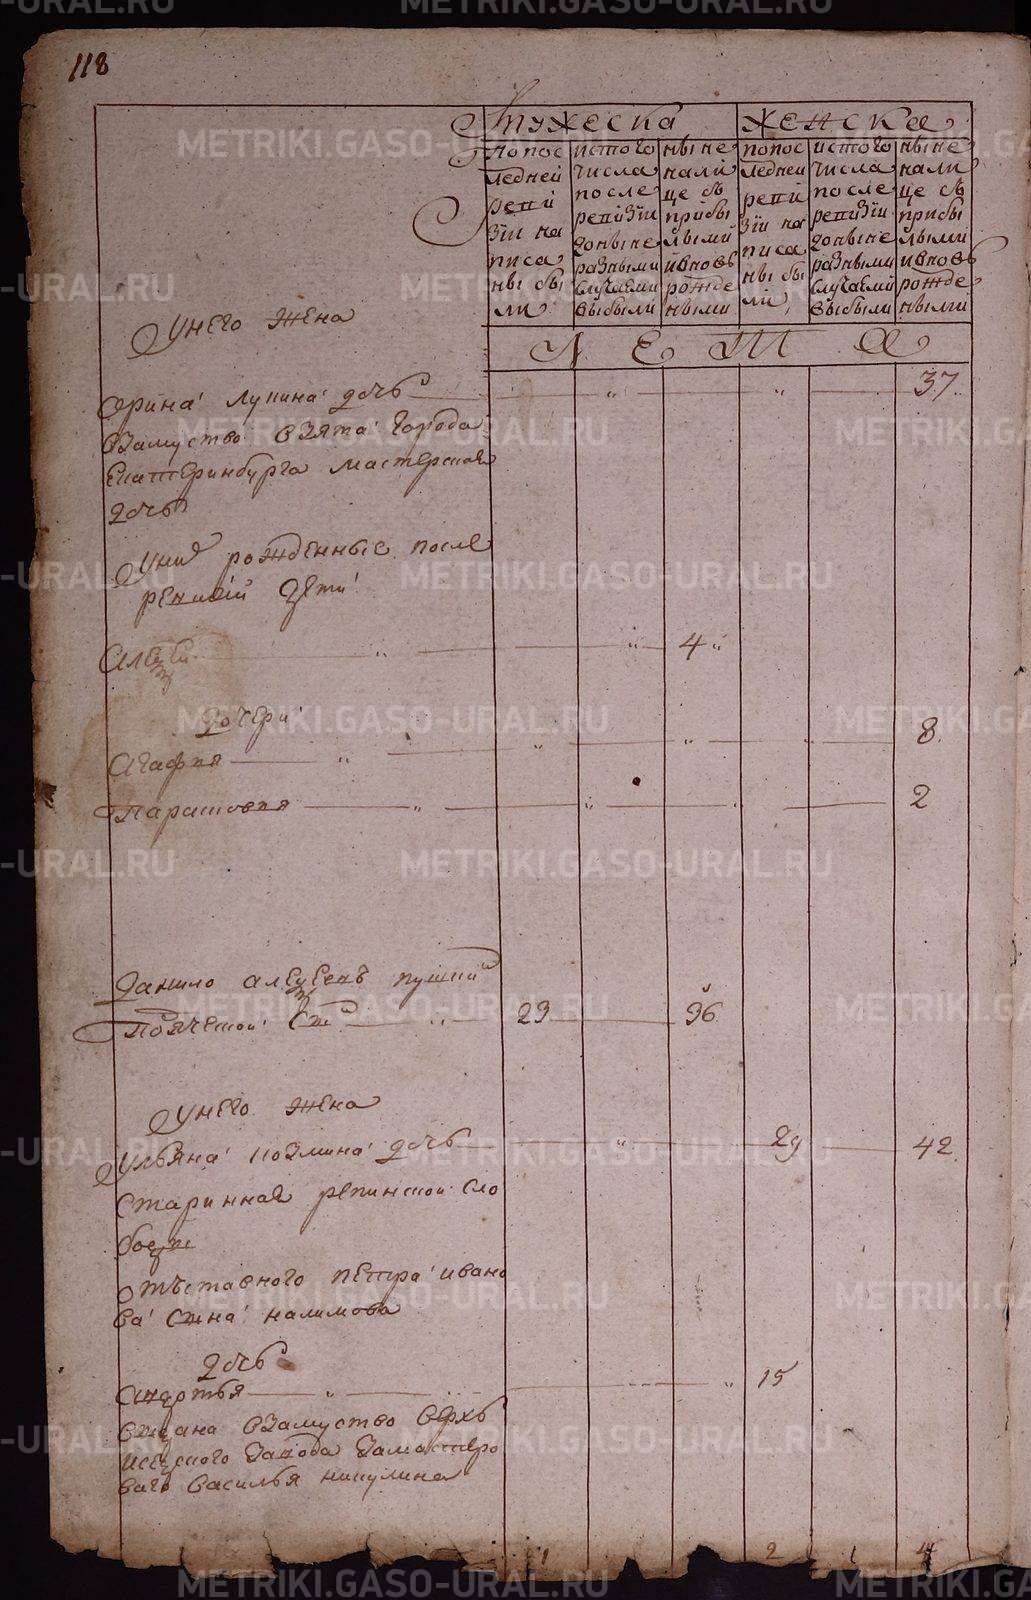 118
мужеска
женска
по пос
ледней
ревизии на
писа
ны бы
ли
из того
числа
после
ревизии
до ныне
разными
случаеми
выбыли
ныне
на ли
це съ
прибы
лыми
и вновь
рожде
ными
по пос
ледней
ревизии на
писа
ны бы
ли
из того
числа
после
ревизии
до ныне
разными
случаеми
выбыли
ныне
на ли
це съ
прибы
лыми
и вновь
рожде
ными
Л Е Т А
У него жена
Орина Лупина дочь 37
взамуство взята города
Екатеринбурга мастерская
дочь
У них рожденные после
ревизии дети
Алексей 4
дочери
Агафия 8
Парасковия 2
Данило Алексеевъ
23 36
У него жена
Ульяна Козмина дочь 29 42
старинная репинской сло
боды
отставного Петра Ивано
ва сына Налимова
дочь
15
выдана взамуство верхъ
исецкого завода за мастеро
ваго Василья Никулина
1 2 1 4
METRIKI.GASO-URAL.RU